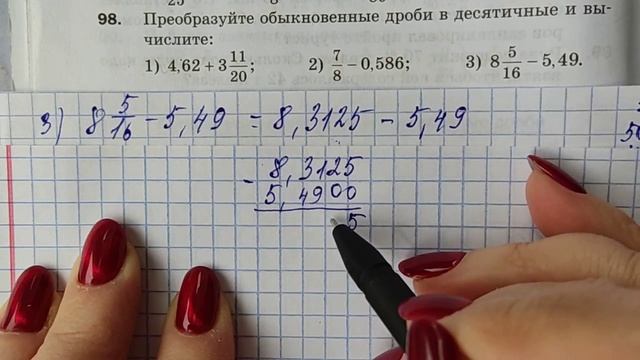 98. Преобразуйте обыкновенные дроби в десятичные и вы-
числите:
1) 4,62 + 3 11/20; 2) 7/8 − 0,586; 3) 8 5/16 − 5,49.
3) 8 5/16 − 5,49 = 8,3125 − 5,49
8,3125
− 5,4900
5